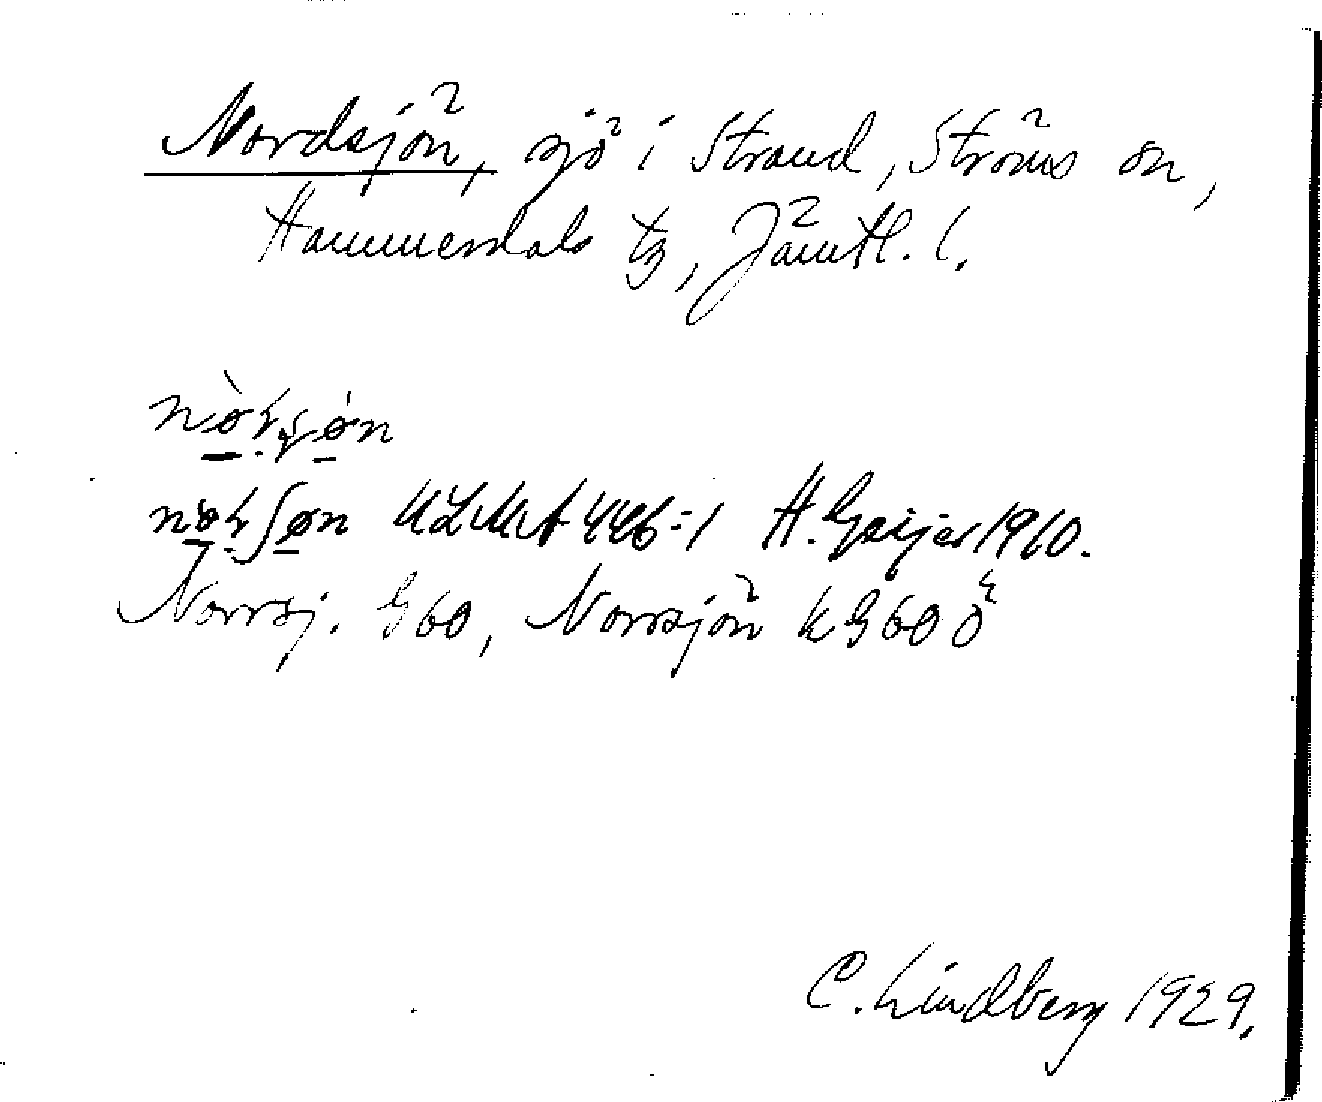 Nordsjön, sjö i Strand, Ströms sn,
Hammerdals tg, Jämtl. l.
ULMA 446:1 H. Geijer 1910.
Norrsj. G60, Norrsjön kG60Ö
C. Lindberg 1929.